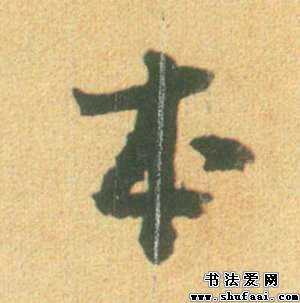 本
书法爱网
www.shufaai.com